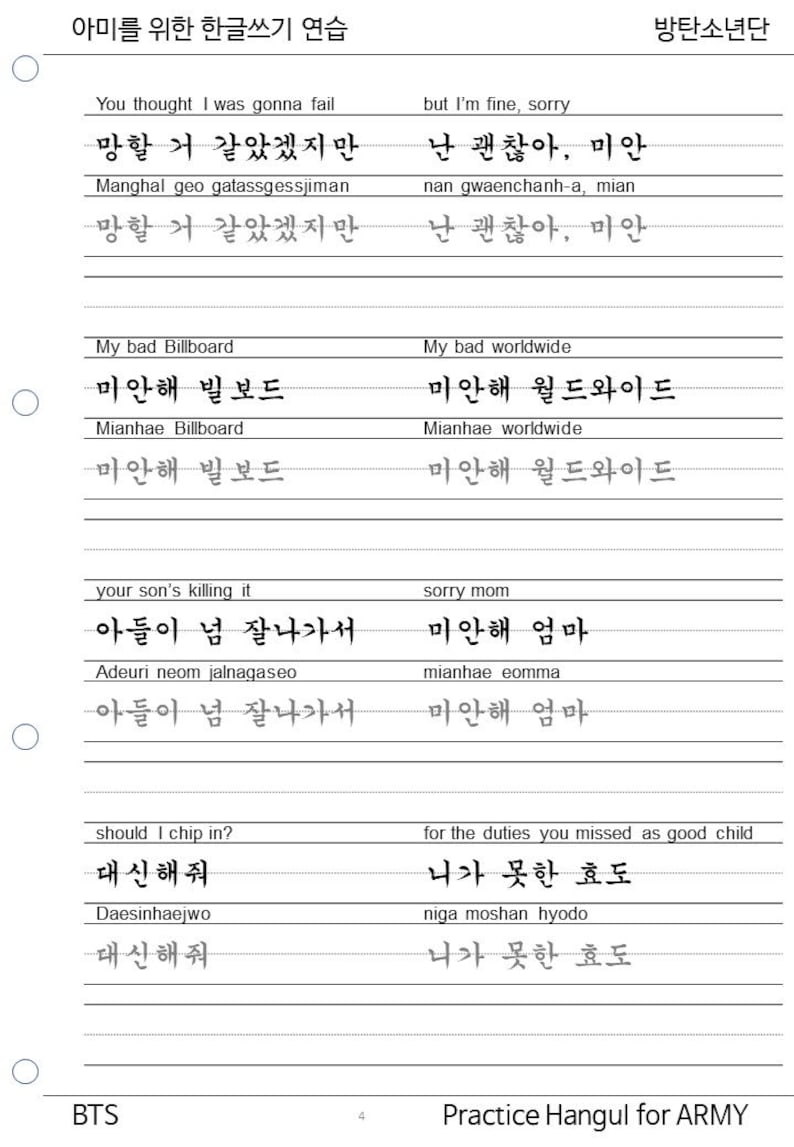 아미를 위한 한글쓰기 연습 방탄소년단
You thought I was gonna fail but I'm fine, sorry
망할 거 같았겠지만 난 괜찮아, 미안
Manghal geo gatassgessjiman nan gwaenchanh-a, mian
망할 거 같았겠지만 난 괜찮아, 미안
My bad Billboard My bad worldwide
미안해 빌보드 미안해 월드와이드
Mianhae Billboard Mianhae worldwide
미안해 빌보드 미안해 월드와이드
your son's killing it sorry mom
아들이 넘 잘나가서 미안해 엄마
Adeuri neom jalnagaseo mianhae eomma
아들이 넘 잘나가서 미안해 엄마
should I chip in? for the duties you missed as good child
대신해줘 니가 못한 효도
Daesinhaejwo niga moshan hyodo
대신해줘 니가 못한 효도
BTS 4 Practice Hangul for ARMY